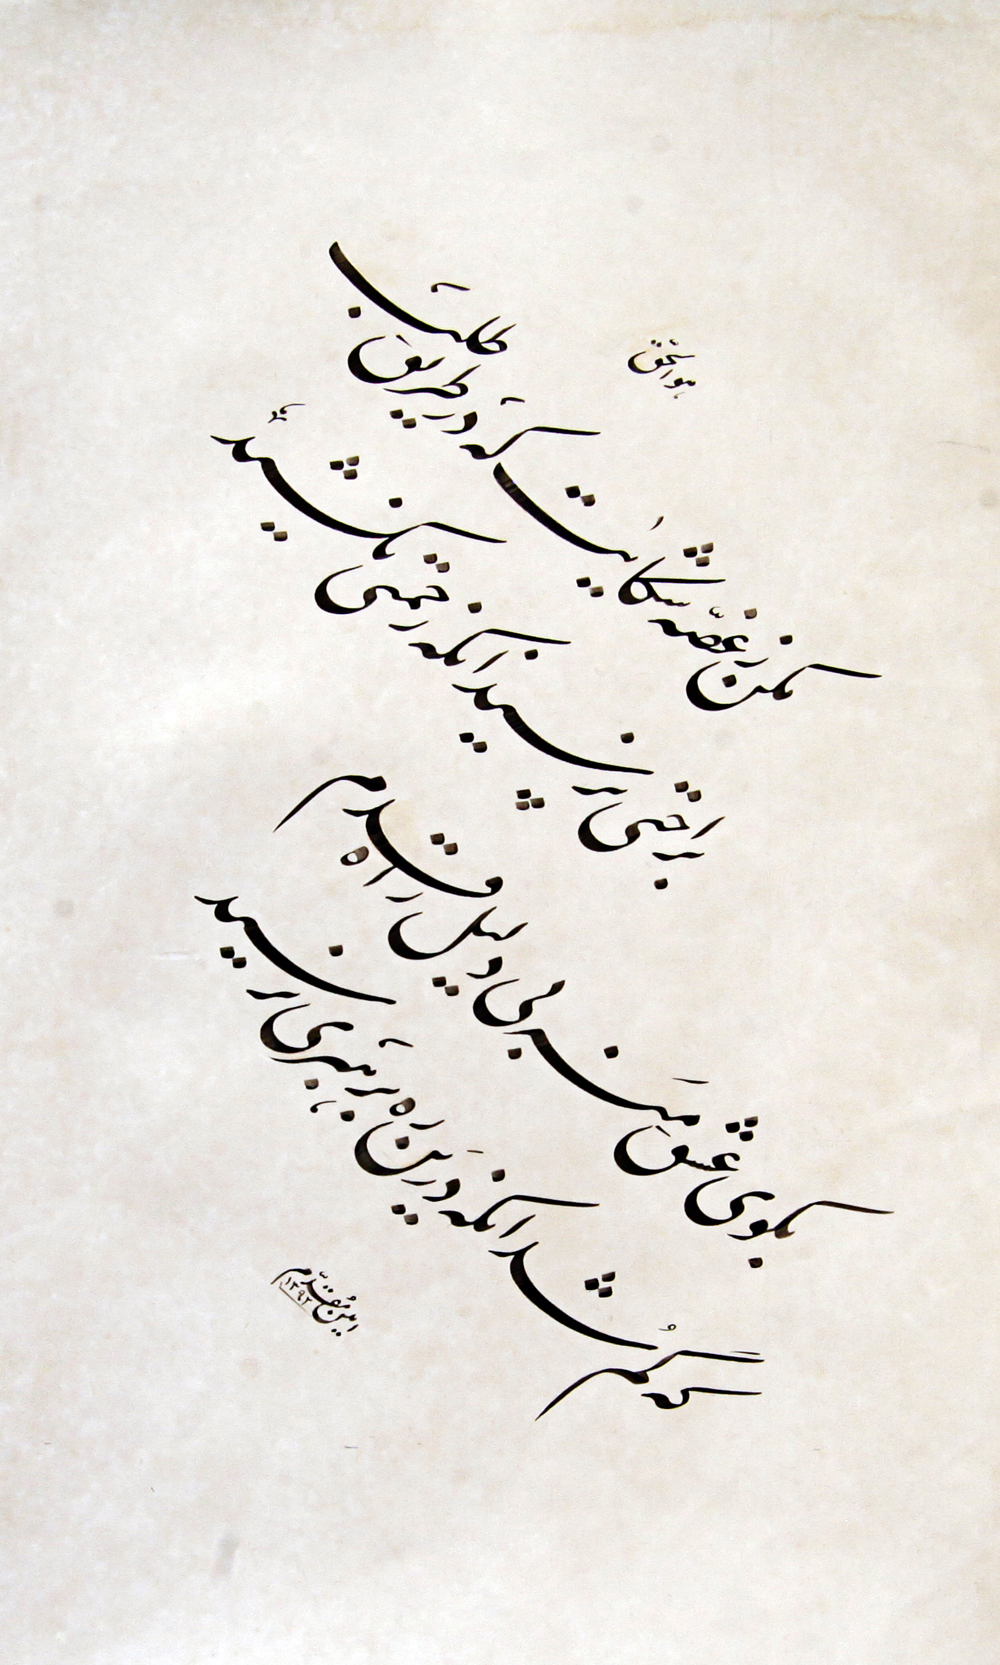 هوالحق
مکن ز غصه شکایت که در طریق طلب
براحتی نرسید آنکه زحمتی نکشید
بکوی عشق منه بی دلیل راه قدم
که گم شد آنکه درین ره برهبری نرسید
امین مقدم
۱۳۹۲